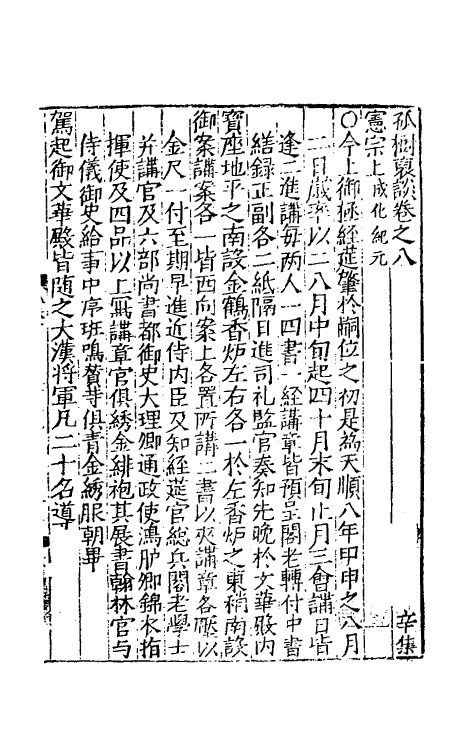 孤樹裒談卷之八
辛集
憲宗上成化紀元
○今上御極經筵肇於嗣位之初是爲天順八年甲申之八月
二日歲率以二八月中旬起四十月末旬止月三會講日皆
逢二進講每兩人一四書一經講章皆預呈閣老轉付中書
繕録正副各二紙隔日進司礼監官奏知先晚於文華殿内
寳座地平之南設金鶴香炉左右各一於左香炉之東稍南設
御案講案各一皆西向案上各置所講二書以夾講章各壓以
金尺一付至期早進近侍内臣及知經筵官總兵閣老學士
并講官及六部尚書都御史大理卿通政使鴻胪卿錦衣指
揮使及四品以上寫講章官俱綉金緋袍其展書翰林官与
侍儀御史給事中序班鳴贊等俱青金綉服朝畢
駕起御文華殿皆随之大漢將軍凡二十名導